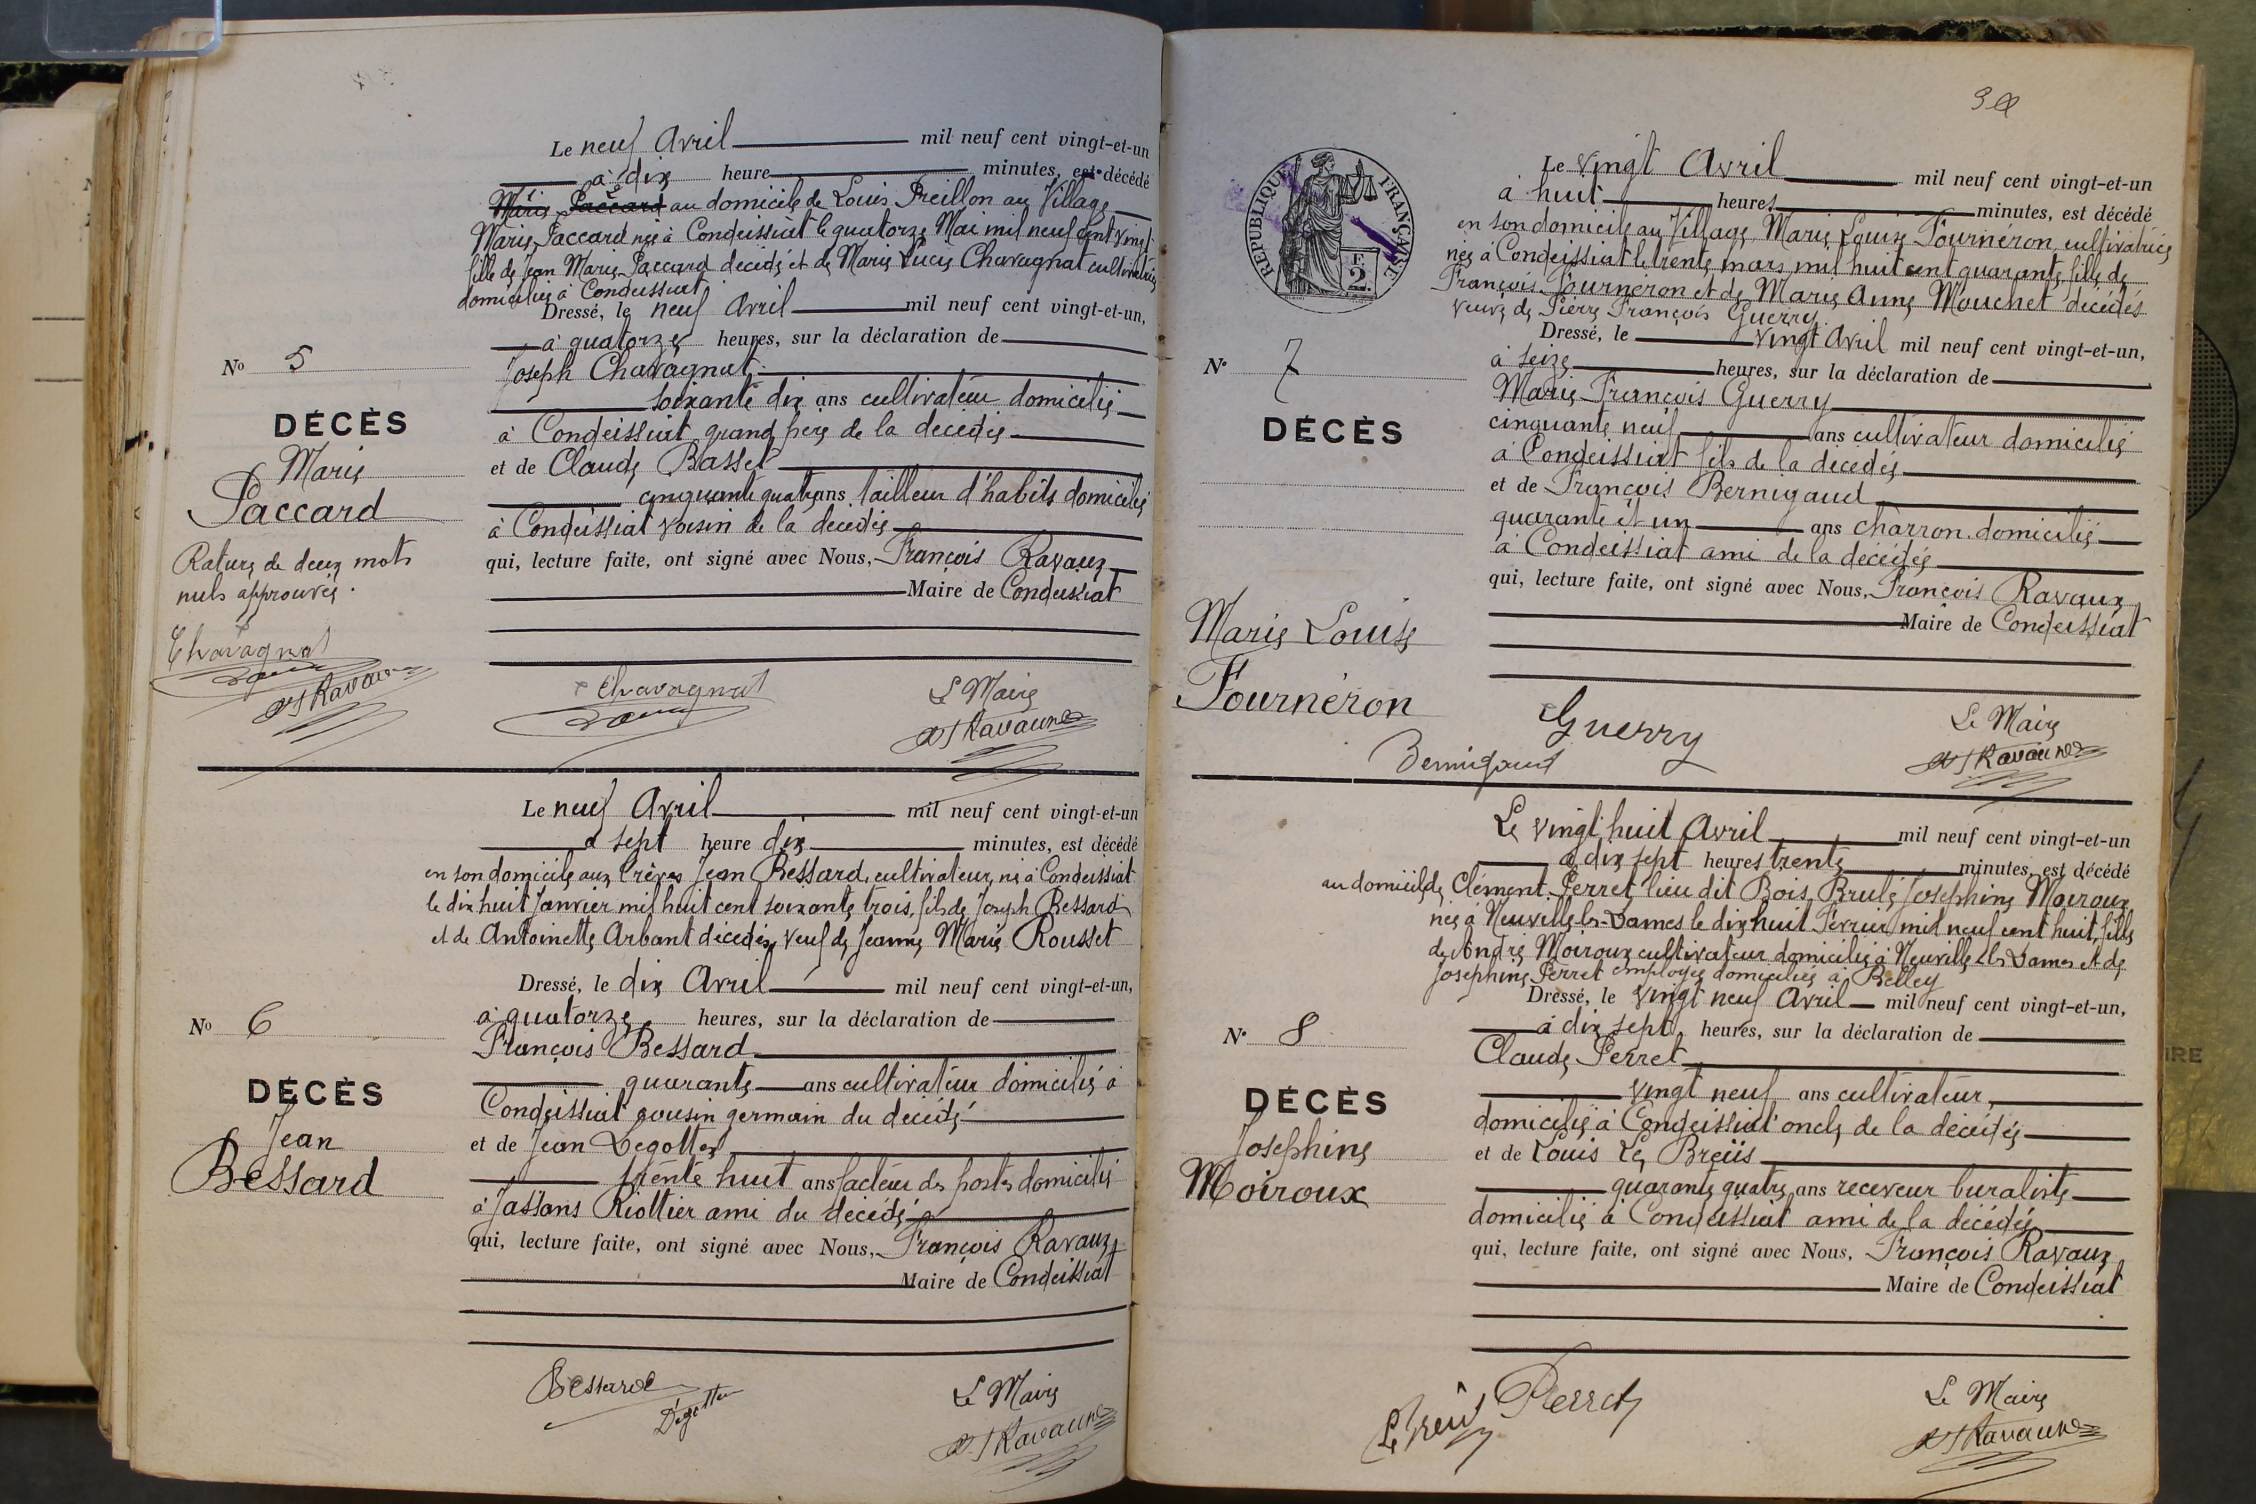 Le neuf Avril mil neuf cent vingt-et-un
à dix heure minutes, est décédé
Marie Paccard au domicile de Louis Preillon au Village
Marie Paccard née à Condeissiat le quatorze Mai mil neuf cent vingt
fille de Jean Marie Paccard décédé et de Marie Lucie Chavagnat cultivatrice
domiciliée à Condeissiat
Dressé, le neuf Avril mil neuf cent vingt-et-un,
à quatorze heures, sur la déclaration de
Joseph Chavagnat
soixante dix ans cultivateur domicilié
à Condeissiat grand père de la décédée
et de Claude Basset
cinquante quatre ans tailleur d'habits domicilié
à Condeissiat voisin de la décédée
qui, lecture faite, ont signé avec Nous, François Ravaux
Maire de Condeissiat
No 5
DÉCÈS
Marie
Paccard
Rature de deux mots
nuls approuvée.
Chavagnat
Ravaux
Chavagnat
Le Maire
Ravaux
Le neuf Avril mil neuf cent vingt-et-un
à sept heure dix minutes, est décédé
en son domicile aux Crêves Jean Bessard, cultivateur, né à Condeissiat
le dix huit Janvier mil huit cent soixante trois, fils de Joseph Bessard
et de Antoinette Arbant décédés, veuf de Jeanne Marie Rousset
Dressé, le dix Avril mil neuf cent vingt-et-un,
à quatorze heures, sur la déclaration de
François Bessard
quarante ans cultivateur domicilié à
Condeissiat cousin germain du décédé
et de Jean Degottex
trente huit ans facteur des postes domicilié
à Jassans Riottier ami du décédé
qui, lecture faite, ont signé avec Nous, François Ravaux
Maire de Condeissiat
No 6
DÉCÈS
Jean
Bessard
Bessard
Degottex
Le Maire
Ravaux
RÉPUBLIQUE FRANÇAISE
F.
2.
Le vingt Avril mil neuf cent vingt-et-un
à huit heures minutes, est décédé
en son domicile au Village Marie Louise Fournéron, cultivatrice
née à Condeissiat le trente mars mil huit cent quarante, fille de
François Fournéron et de Marie Anne Mouchet décédés
veuve de Pierre François Guerry
Dressé, le vingt Avril mil neuf cent vingt-et-un,
à seize heures, sur la déclaration de
Marie François Guerry
cinquante neuf ans cultivateur domicilié
à Condeissiat fils de la décédée
et de François Bernigaud
quarante et un ans charron domicilié
à Condeissiat ami de la décédée
qui, lecture faite, ont signé avec Nous, François Ravaux
Maire de Condeissiat
No 7
DÉCÈS
Marie Louise
Fournéron
Guerry
Bernigaud
Le Maire
Ravaux
Le vingt huit Avril mil neuf cent vingt-et-un
à dix sept heures trente minutes, est décédé
au domicile de Clément Perret lieu dit Bois Brulé Josephine Moiroux
née à Neuville-les-Dames le dix huit Février mil neuf cent huit, fille
de André Moiroux cultivateur domicilié à Neuville-les-Dames et de
Josephine Perret employée domiciliée à Belley
Dressé, le vingt neuf Avril mil neuf cent vingt-et-un,
à dix sept heures, sur la déclaration de
Claude Perret
vingt neuf ans cultivateur,
domicilié à Condeissiat oncle de la décédée
et de Louis Le Breüs
quarante quatre ans receveur buraliste
domicilié à Condeissiat ami de la décédée
qui, lecture faite, ont signé avec Nous, François Ravaux
Maire de Condeissiat
No 8
DÉCÈS
Josephine
Moiroux
Perret
Le Maire
Ravaux